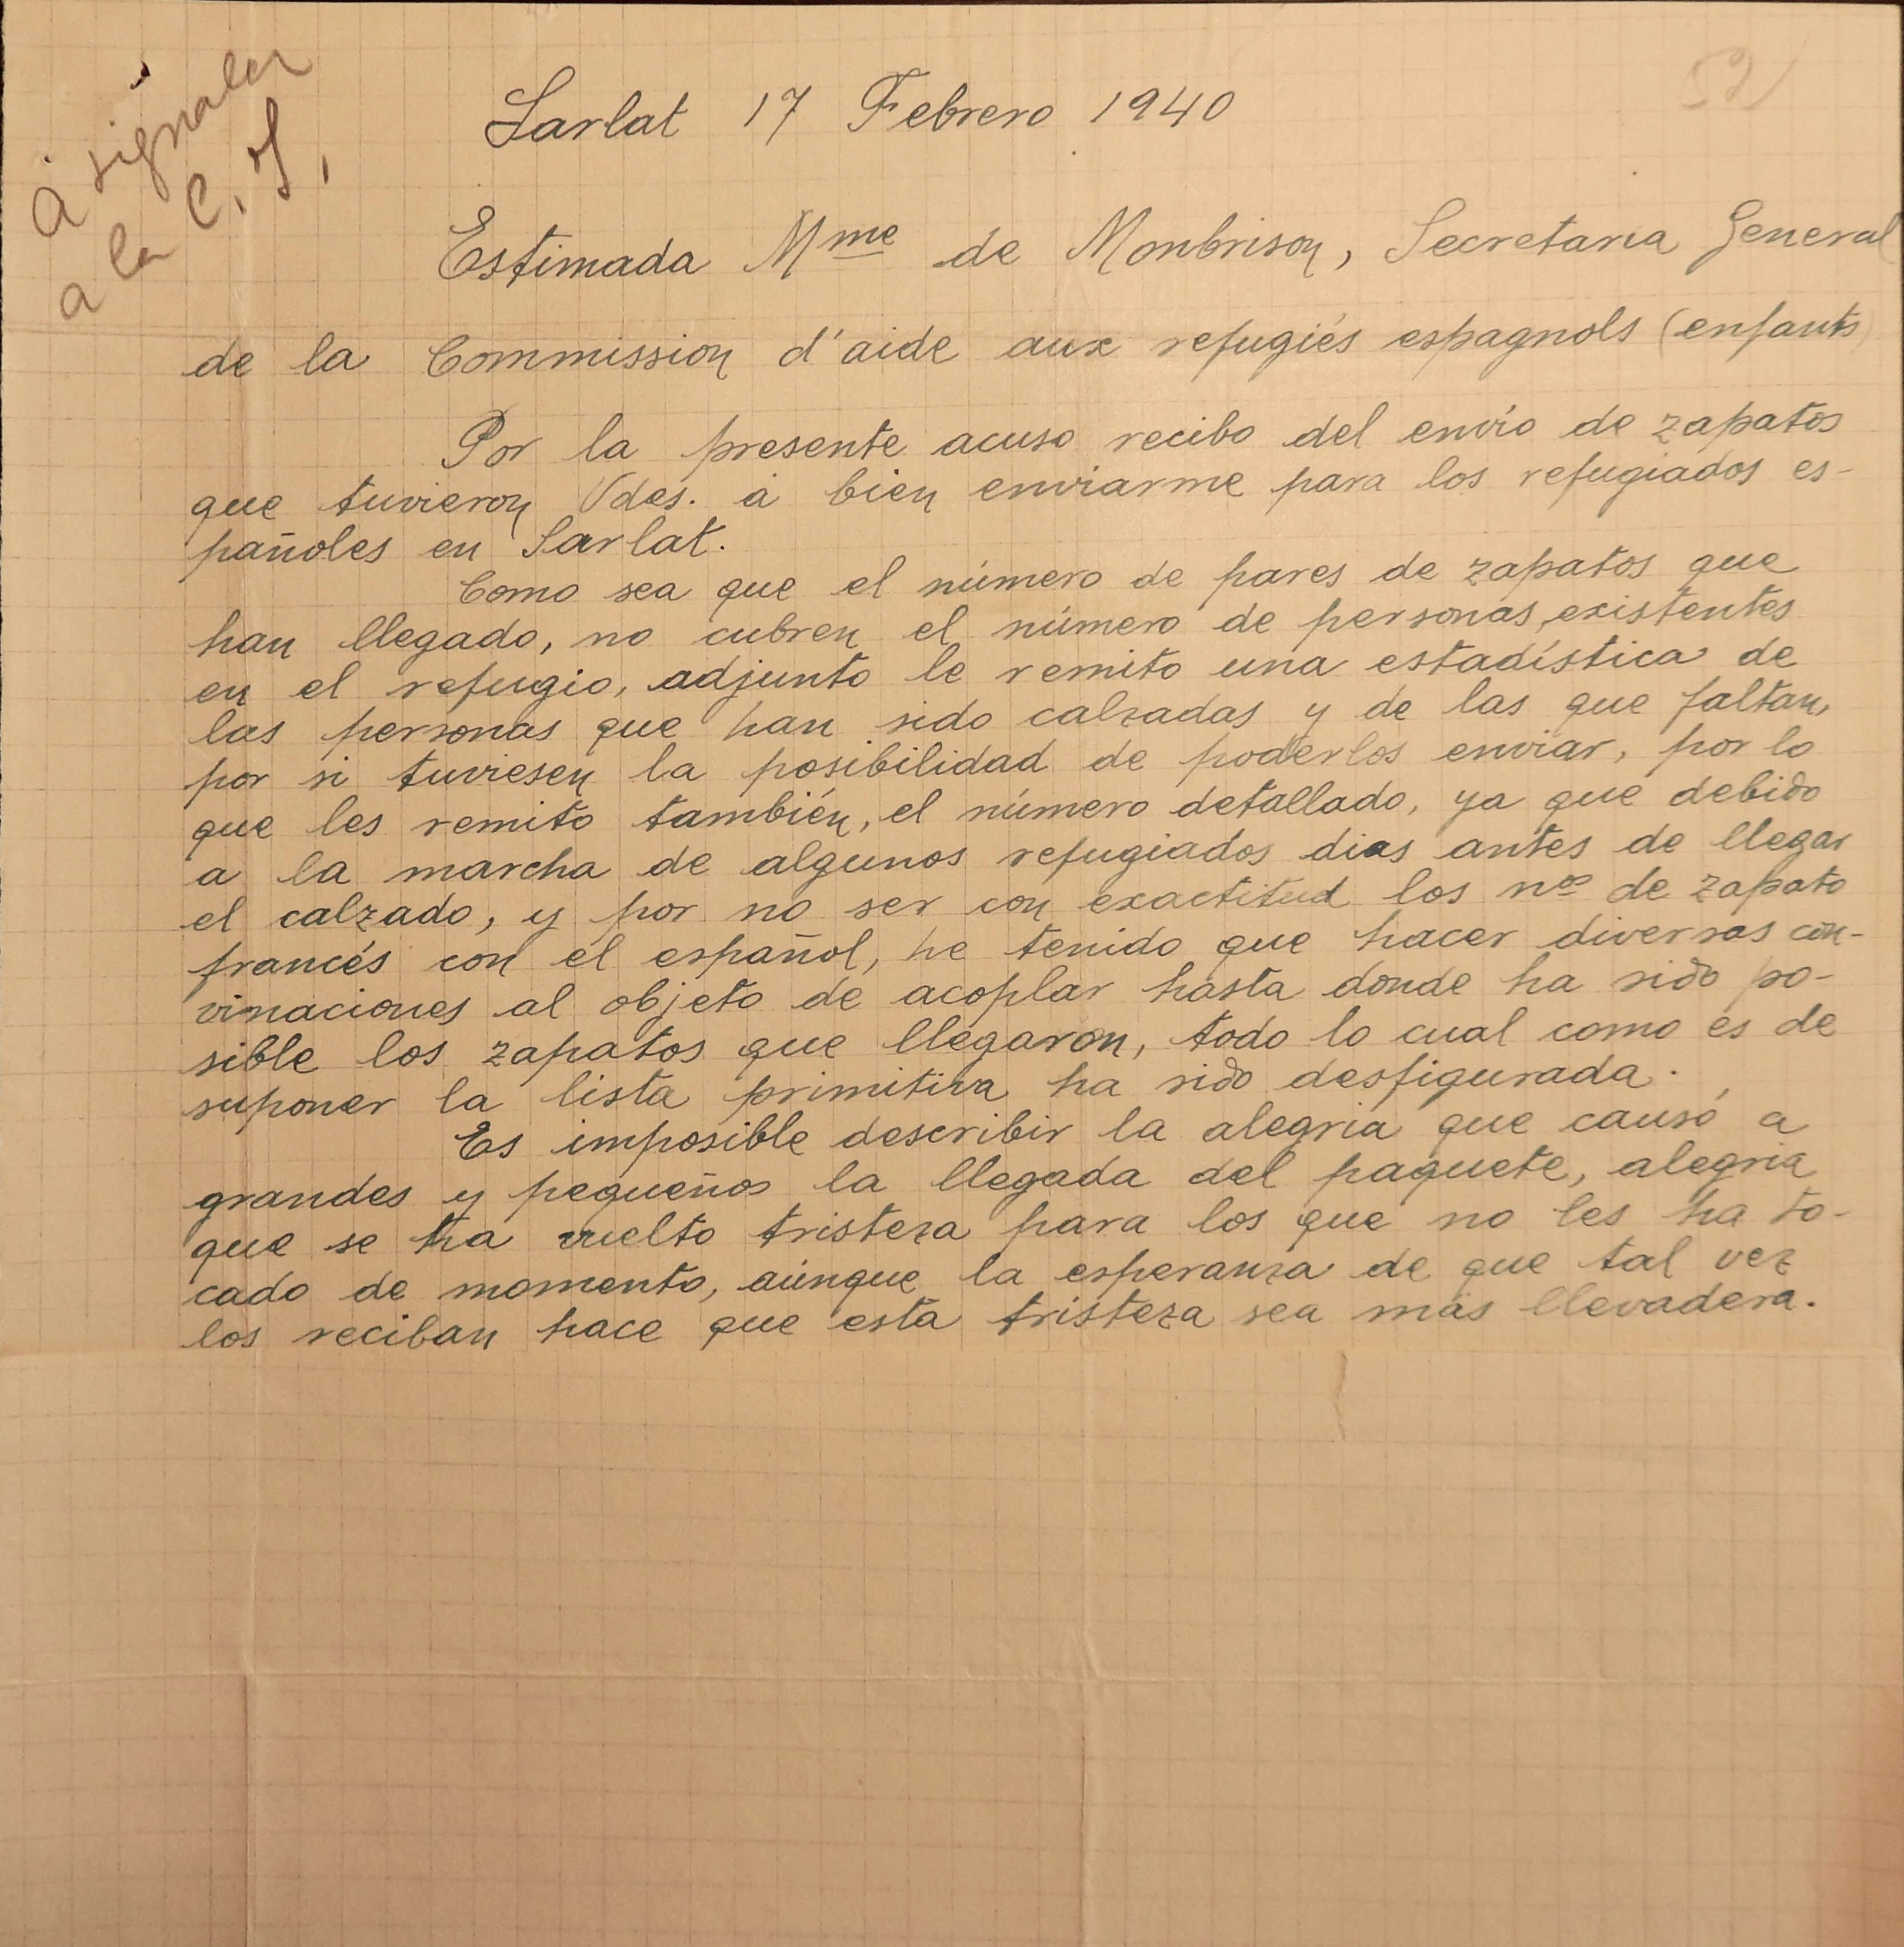 à signaler
a la C. I.
52
Sarlat 17 Febrero 1940
Estimada Mme de Monbrison, Secretaria General
de la Commission d'aide aux refugiés espagnols (enfants)
Por la presente acuso recibo del envio de zapatos
que tuvieron Vdes. á bien enviarme para los refugiados es-
pañoles en Sarlat.
Como sea que el número de pares de zapatos que
han llegado, no cubren el número de personas existentes
en el refugio, adjunto le remito una estadística de
las personas que han sido calzadas y de las que faltan,
por si tuviesen la posibilidad de poderlos enviar, por lo
que les remito también, el número detallado, ya que debido
a la marcha de algunos refugiados dias antes de llegar
el calzado, y por no ser con exactitud los nos de zapato
francés con el español, he tenido que hacer diversas con-
vinaciones al objeto de acoplar hasta donde ha sido po-
sible los zapatos que llegaron, todo lo cual como es de
suponer la lista primitiva ha sido desfigurada.
Es imposible describir la alegria que causó a
grandes y pequeños la llegada del paquete, alegria
que se ha vuelto tristeza para los que no les ha to-
cado de momento, aúnque la esperanza de que tal vez
los reciban hace que esta tristeza sea más llevadera.